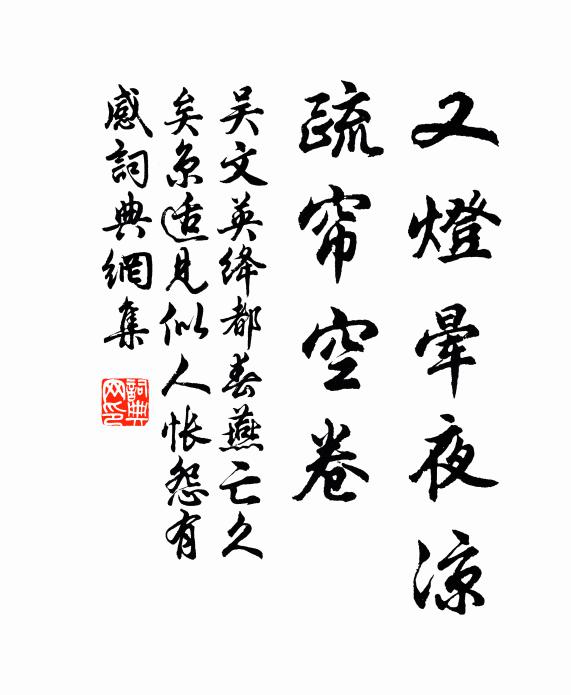 又燈暈夜涼
疏帘空卷
吴文英绛都春燕亡久
矣京适见似人怅怨有
感詞典網集
詞典网印